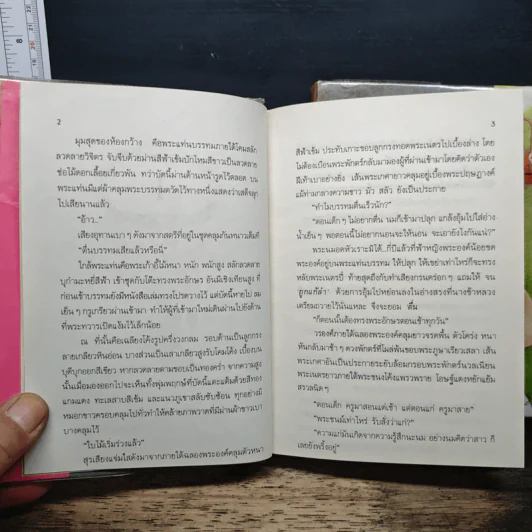 2
มุมสุดของห้องกว้าง คือพระแท่นบรรทมภายใต้โดมสลัก
ลวดลายวิจิตร จับจีบด้วยม่านสีฟ้าเข้มปักไหมสีขาวเป็นลวดลาย
ช่อไม้ดอกเลื้อยเกี่ยวพัน ทว่าบัดนี้ม่านด้านหน้ารูดไว้ตลอด บน
พระแท่นมีแต่ผ้าคลุมพระบรรทมตวัดไว้ทางหนึ่งแสดงว่าเสด็จลุก
ไปเสียนานแล้ว
"อ้าว..."
เสียงอุทานเบา ๆ ดังมาจากสตรีที่อยู่ในชุดคลุมกันหนาวเต็มที่
"ตื่นบรรทมเสียแล้วหรือนี่"
ใกล้พระแท่นคือพระเก้าอี้ไม้หนา หนัก พนักสูง สลักลวดลาย
บุกำมะหยี่สีฟ้า เข้าชุดกับโต๊ะทรงพระอักษร อันมีเชิงเทียนสูง ที่
ก่อนเข้าบรรทมยังมีหนังสือเล่มทรงโปรดวางไว้ แต่บัดนี้หายไป ลม
เย็น ๆ กรูเกรียวผ่านเข้ามา ทำให้ผู้ที่เข้ามาใหม่เดินผ่านไปยังด้าน
ที่พระทวารเปิดแง้มไว้เล็กน้อย
ณ ที่นั้นคือเฉลียงโค้งรูปครึ่งวงกลม รอบด้านเป็นลูกกรง
ลายเกลียวหินอ่อน บางส่วนเป็นเสาเกลียวสูงรับโดมโค้ง เบื้องบน
บุตีบุกออกสีเขียว หากลวดลายตามขอบเป็นทองคร่ำ จากความสูง
นั้นเมื่อมองออกไปจะเห็นทั้งพุ่มพฤกษ์ที่บัดนี้แตะแต้มด้วยสีทอง
แกมแดง ทะเลสาบสีเข้ม และแนวภูเขาสลับซับซ้อน ทุกอย่างมี
หมอกขาวครอบคลุมไปทั่วทำให้คล้ายภาพวาดที่มีม่านผ้าขาวเบา
บางคลุมไว้
"ใบไม้เริ่มร่วงแล้ว"
สุรเสียงแจ่มใสดังมาจากภายใต้ฉลองพระองค์คลุมตัวหนา
3
สีฟ้าเข้ม ประทับเกาะขอบลูกกรงทอดพระเนตรไปเบื้องล่าง โดย
ไม่ต้องเบือนพระพักตร์กลับมามองผู้ที่ผ่านเข้ามาโดยคิดว่าตัวเอง
ฝีเท้าเบาอย่างยิ่ง เส้นพระเกศายาวคลุมอยู่เบื้องพระปฤษฎางค์
แม้ท่ามกลางความขาว มัว สลัว ยังเป็นประกาย
"ทำไมบรรทมตื่นเร็วนัก?"
"ตอนเด็ก ๆ ไม่อยากตื่น นมก็เข้ามาปลุก แกล้งอุ้มไปใส่อ่าง
น้ำเย็น ๆ พอตอนนี้ไม่อยากนอนจะให้นอน จะเอายังไงกันแน่?"
พระนมอดหัวเราะมิได้...กี่ปีแล้วที่ฟ้าหญิงพระองค์น้อยขด
พระองค์อยู่บนพระแท่นบรรทม ให้ปลุก ให้เขย่าเท่าไหร่ก็จะทรง
หลับพระเนตรปี๋ ท้ายสุดถึงกับทำเสียงกรนคร่อก ๆ แถมให้ จน
'ถูกแกล้ง' ด้วยการอุ้มไปหย่อนลงในอ่างสรงที่นางข้าหลวง
เตรียมถวายไว้นั่นแหละ จึงจะยอม 'ตื่น'
"ก็ตอนนั้นต้องทรงพระอักษรตอนเช้าทุกวัน"
วรองค์ภายใต้ฉลองพระองค์คลุมยาวจรดพื้น ตัวโคร่ง หนา
หันกลับมาช้า ๆ ดวงพักตร์ที่โผล่พ้นขอบพระภูษาเรียวเสลา เส้น
พระเกศาอันเป็นประกายระยับล้อมกรอบพระพักตร์นวลเนียน
พระเนตรยาวภายใต้พระขนงโค้งแพรวพราย โอษฐ์แดงหยักแย้ม
สรวลนิด ๆ
"ตอนเด็ก ครูมาสอนแต่เช้า แต่ตอนแก่ ครูมาสาย"
"พระชนม์เท่าไหร่ รับสั่งว่าแก่?"
"ความแก่มันเกิดจากความรู้สึกนะนม อย่างนมคิดว่าสาว ก็
เลยยังพริ้งอยู่"